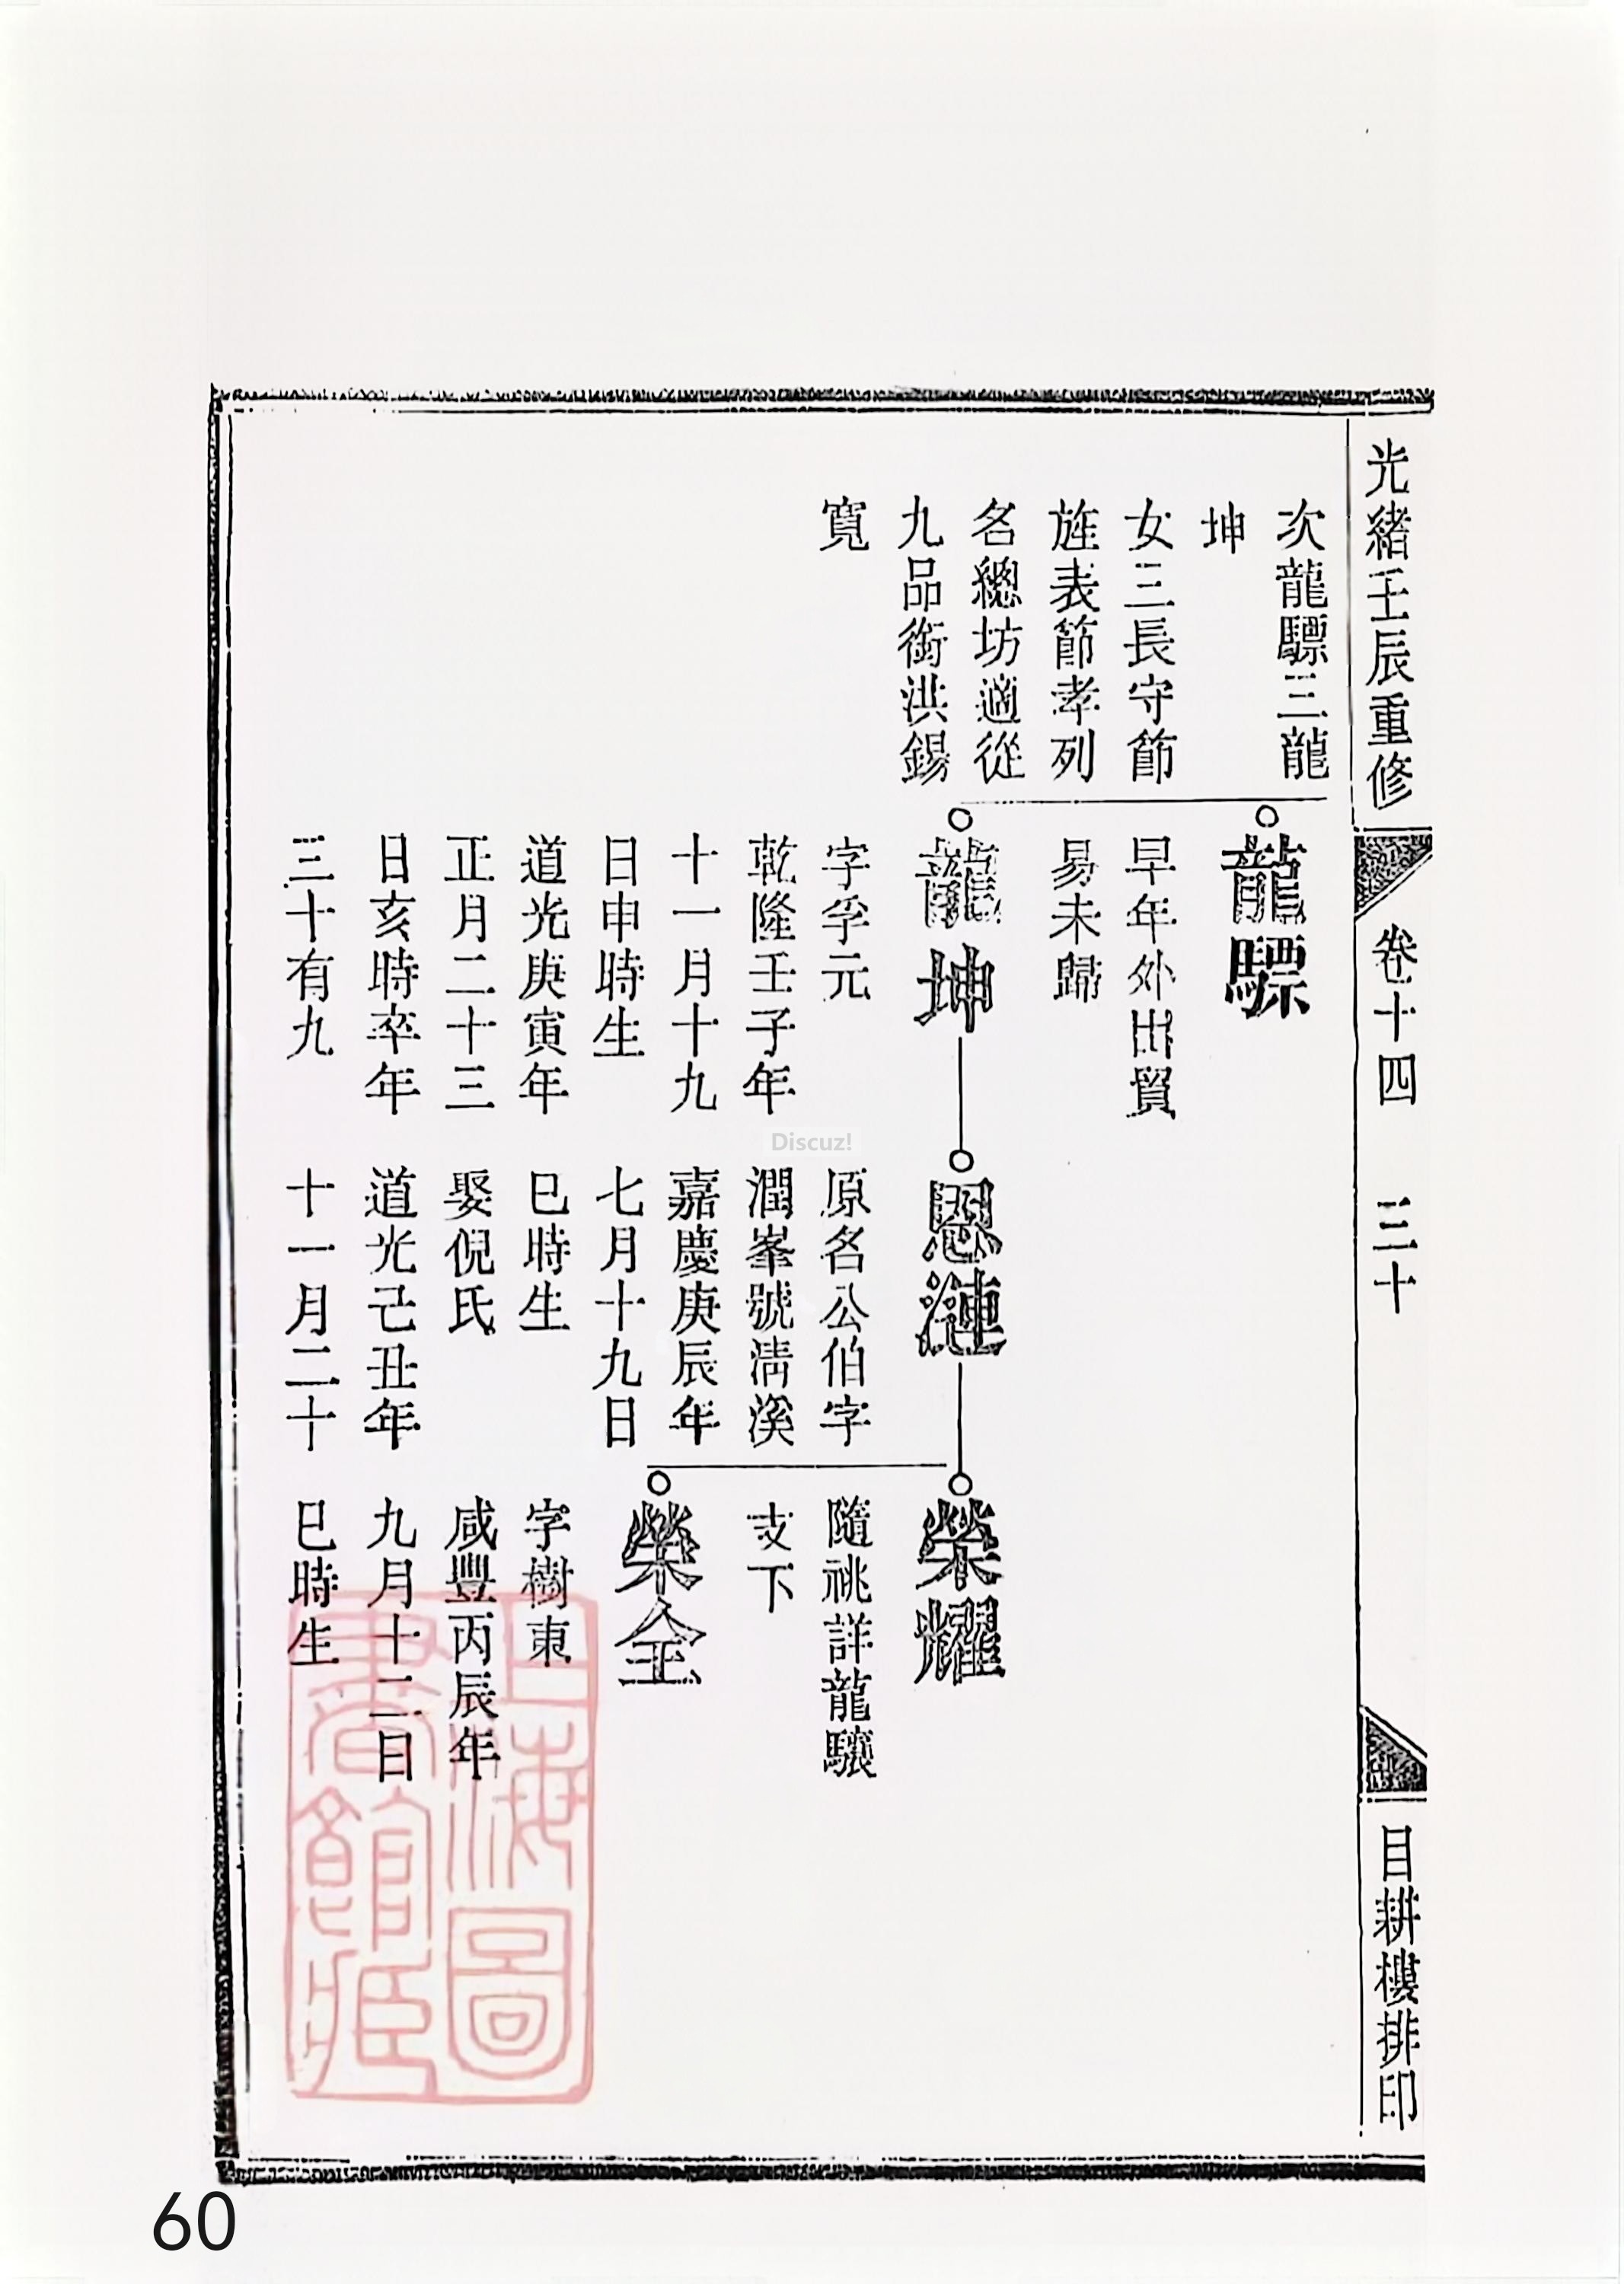 光緒壬辰重修
卷十四
三十
目耕樓排印
次龍驃三龍
坤
女三長守節
旌表節孝列
名總坊適從
九品銜洪錫
寬
龍驃
早年外出貿
易未歸
龍坤
字孚元
乾隆壬子年
十一月十九
日申時生
道光庚寅年
正月二十三
日亥時卒年
三十有九
恩漣
原名公伯字
潤峯號淸溪
嘉慶庚辰年
七月十九日
巳時生
娶倪氏
道光己丑年
十一月二十
榮耀
隨祧詳龍驤
支下
榮全
字樹東
咸豐丙辰年
九月十二日
巳時生
上海圖
書館藏
Discuz!
60